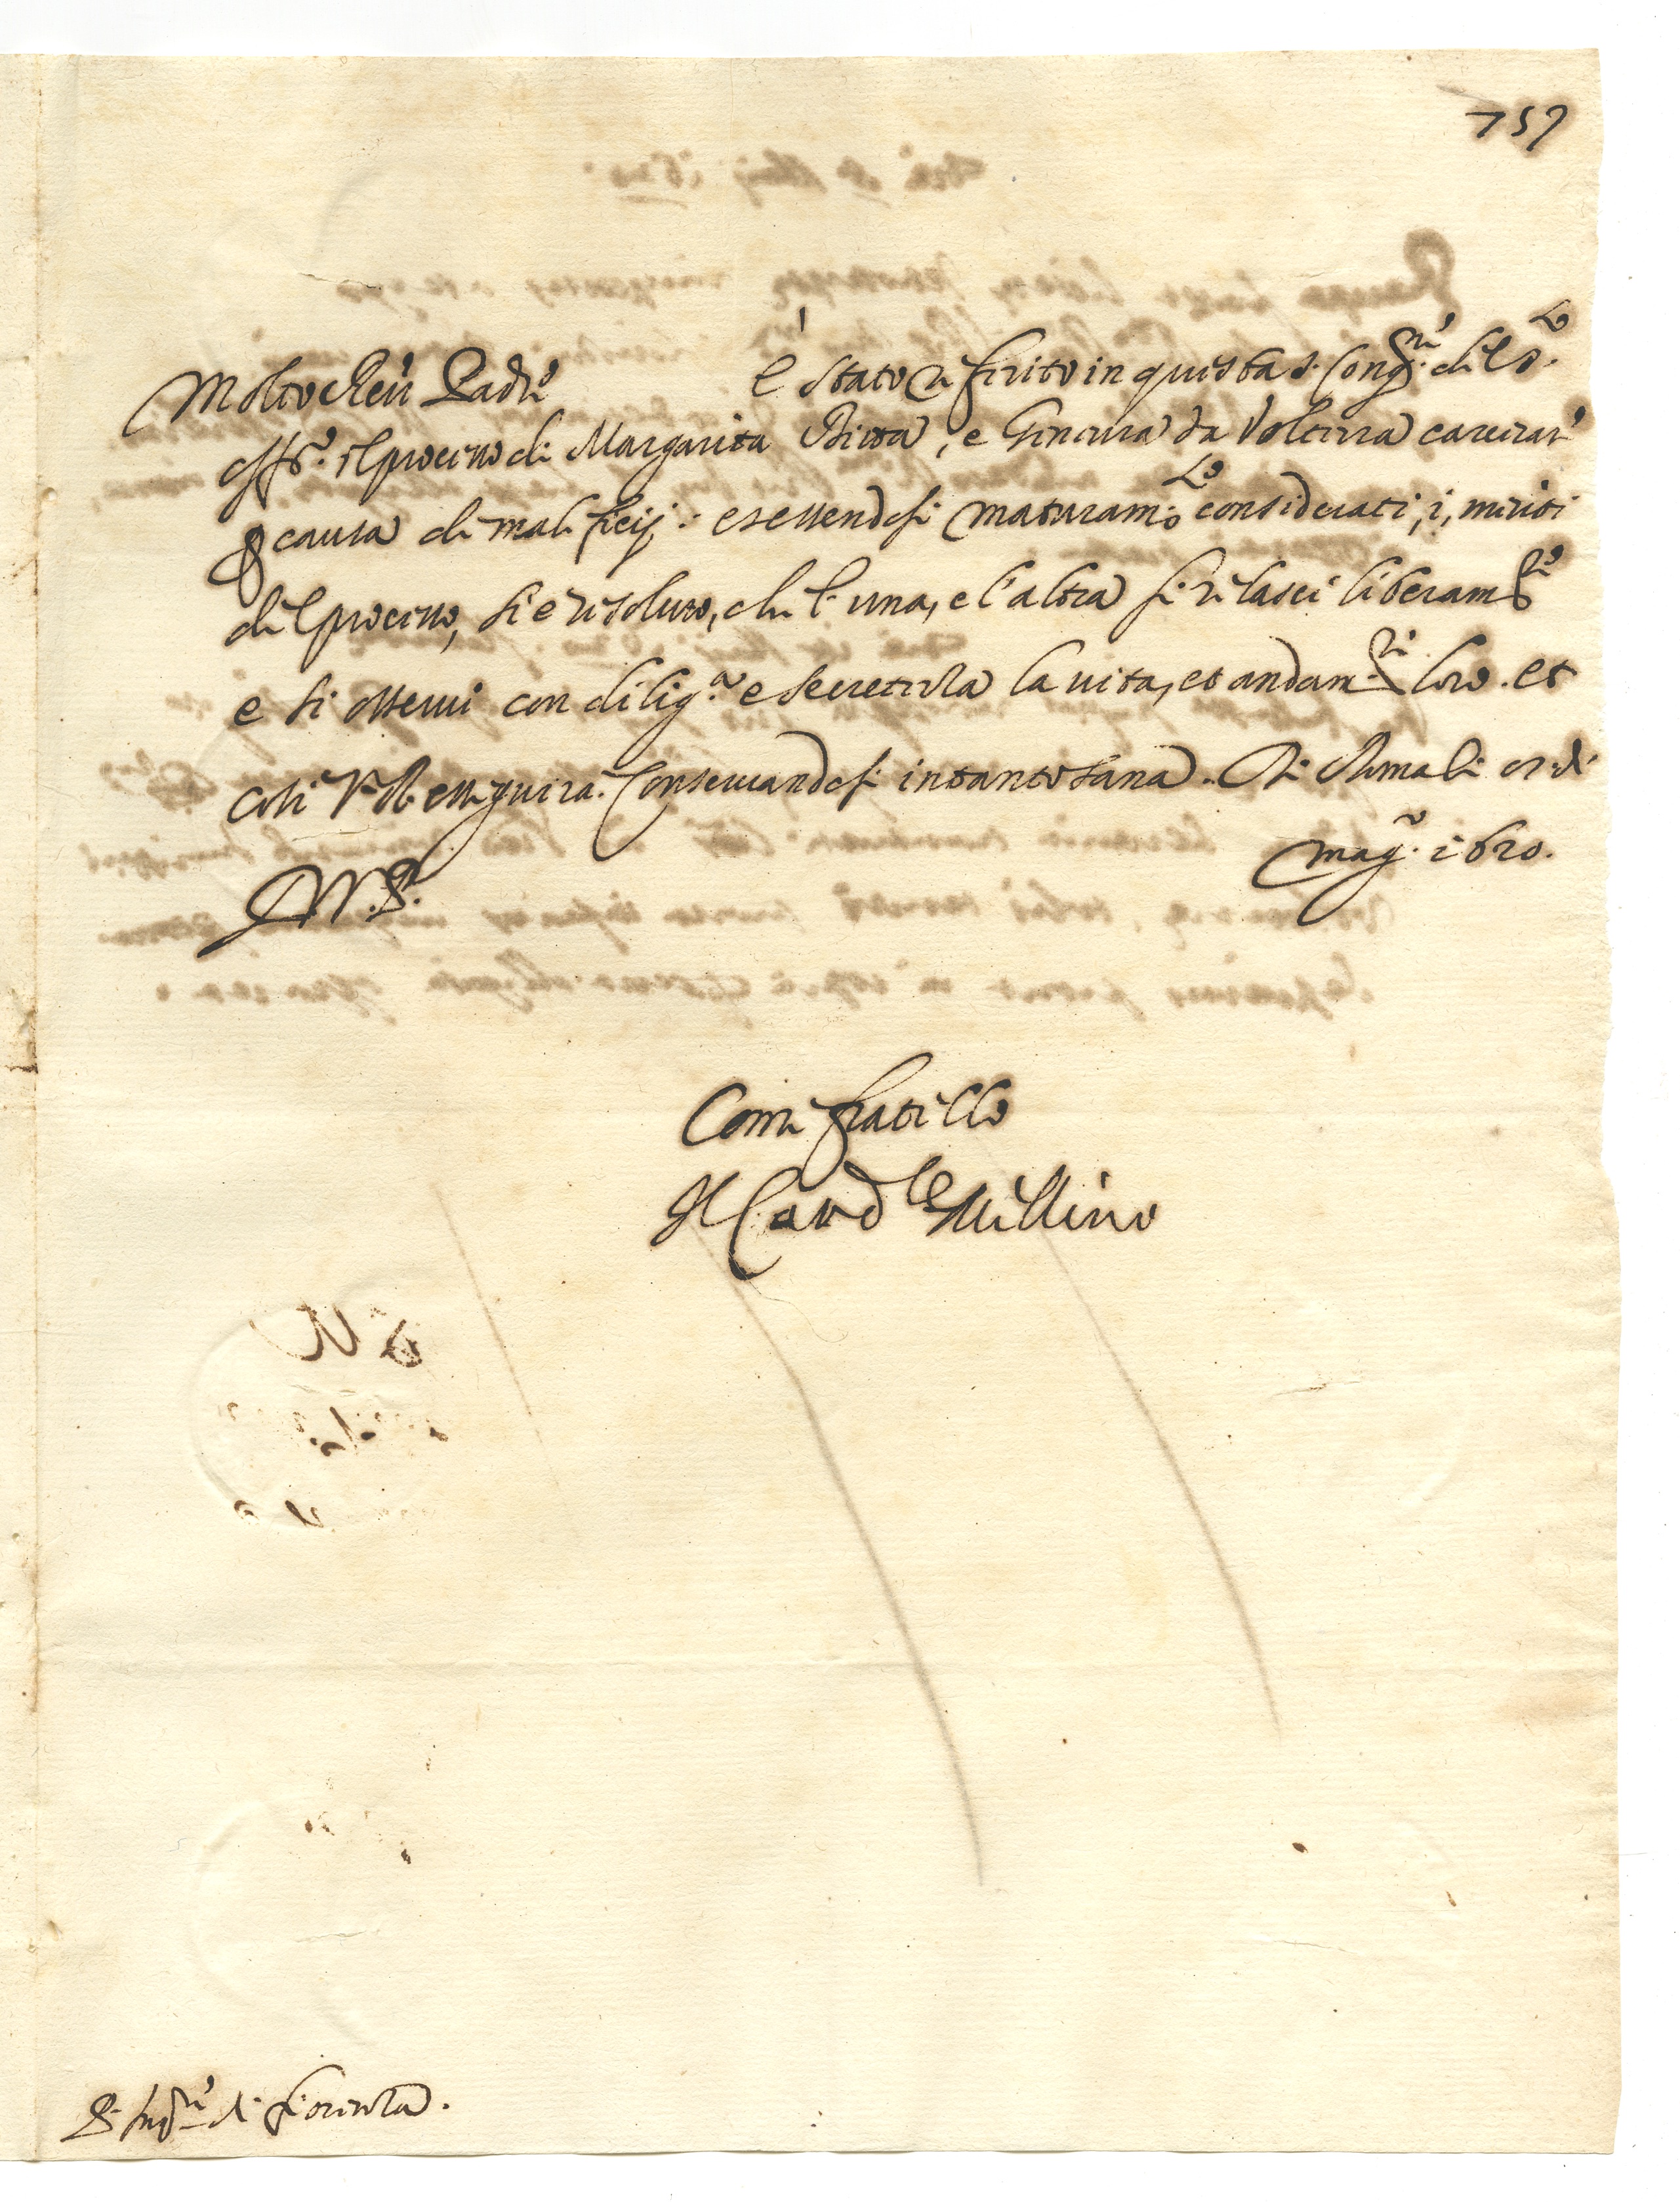 757
Molto Reu Padre È stato referito in questa s. Congne del Sto
Offo. il processo di Margarita e Gineura da Volterra carcerate
per causa di maleficij: et essendosi maturamte considerati, i, meriti
del processo, si è risoluto, che l'una, e l'altra si rilasci liberamte
e si osserui con diliga e secretezza la uita, et andamti loro. et
cosi V.R. esseguirà. Conseruandosi intanto sana. Di Roma li di
Mago. 1620.
V.R.
Come fratello
Il Cardle Millino
P. Inqre di Fiorenza.